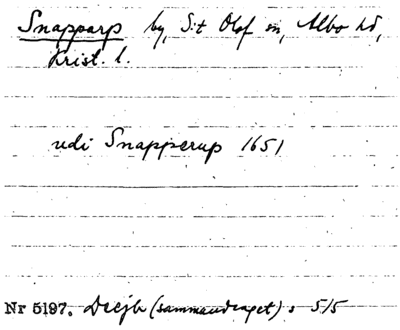 Snapparp by, S:t Olof sn, Albo hd,
Krist. l.
udi Snapperup 1651
Nr 5197. Decjb (sammandraget) s 515